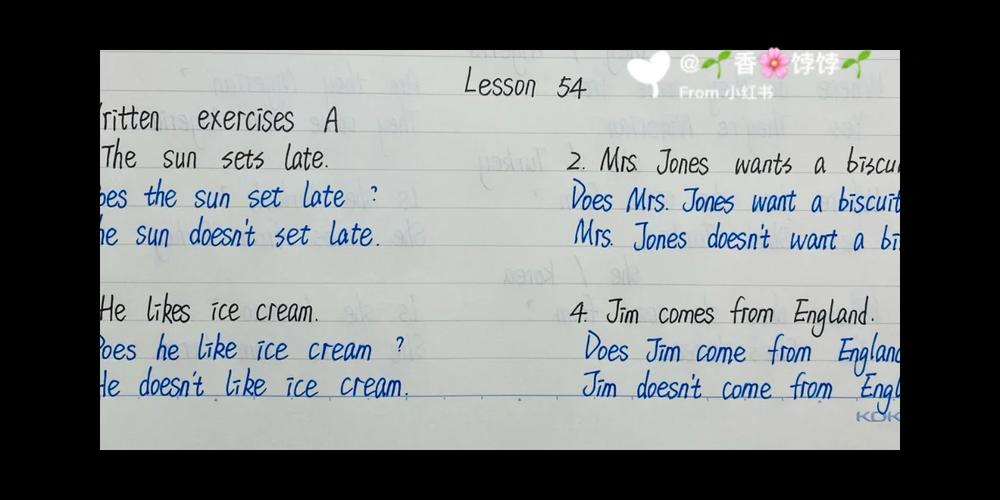 @🌱香🌸饽饽🌱
From 小红书
Lesson 54
ritten exercises A
The sun sets late.
oes the sun set late ?
he sun doesn't set late.
2. Mrs. Jones wants a biscu
Does Mrs. Jones want a biscuit
Mrs. Jones doesn't want a bi
He likes ice cream.
Does he like ice cream ?
He doesn't like ice cream.
4. Jim comes from England.
Does Jim come from England
Jim doesn't come from Engl
KOK